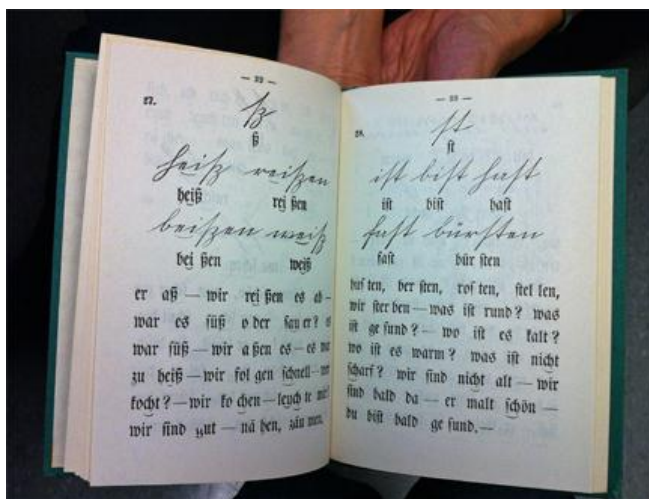 — 22 —
27.
ß
ß
heiß reißen
heiß rei ßen
beißen weiß
bei ßen weiß
er aß — wir rei ßen es ab —
war es süß o der sau er?
war süß — wir a ßen es — es
zu heiß — wir fol gen schnell —
kocht? — wir ko chen — leuch te
wir sind gut — nä hen, zäu men,
— 23 —
28.
st
st
ist bist hast
ist bist hast
fast bürsten
fast bür sten
hus ten, ber sten, ros ten, stel len,
wir ster ben — was ist rund? was
ist ge sund? — wo ist es kalt?
wo ist es warm? was ist nicht
scharf? wir sind nicht alt — wir
sind bald da — er malt schön —
du bist bald ge sund. —